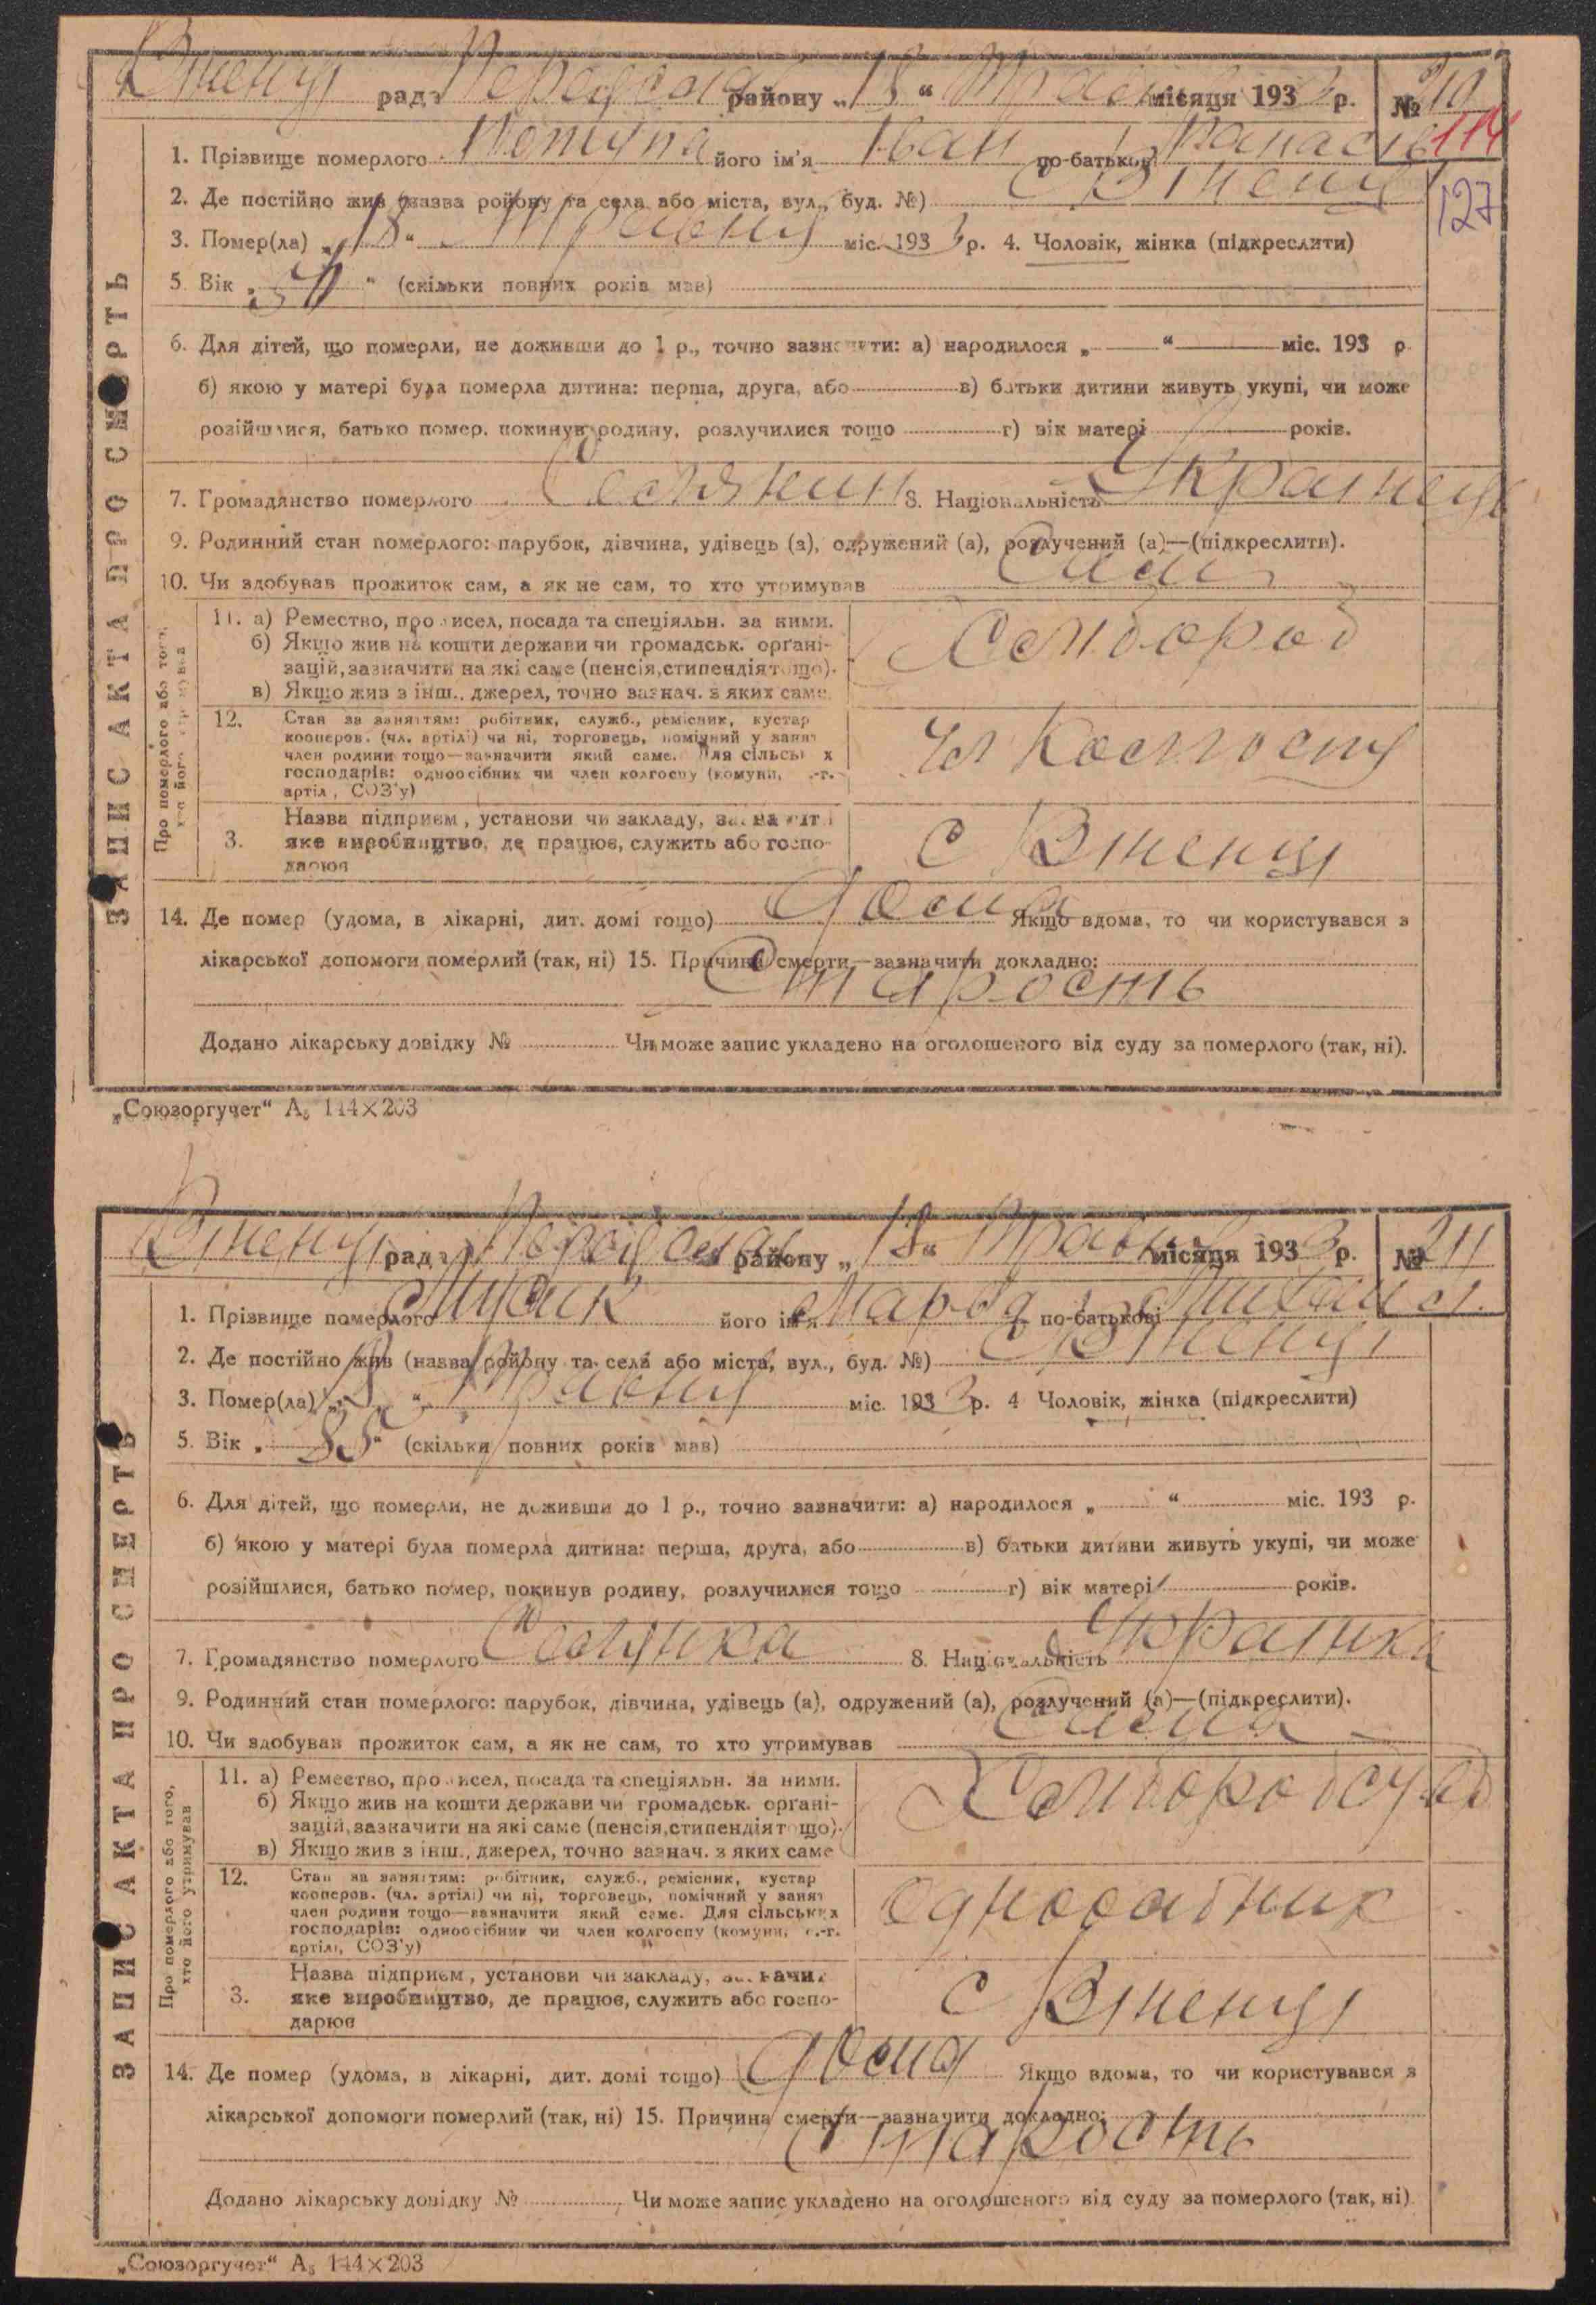 В'юнищ рада район у „ 18 “ Травня місяця 1933 р. № 210
114
127
1. Прізвище померлого його ім'я Іван по-батькові Панасів
2. Де постійно жив (назва району та села або міста, вул., буд. №) с
3. Помер(ла) „ 18 “ Травня міс. 1933 р. 4. Чоловік, жінка (підкреслити)
5. Вік „ “ (скільки повних років мав)
6. Для дітей, що померли, не доживши до 1 р., точно зазначити: а) народилося „ “ міс. 193 р.
б) якою у матері була померла дитина: перша, друга, або в) батьки дитини живуть укупі, чи може
розійшлися, батько помер, покинув родину, розлучилися тощо г) вік матері років.
7. Громадянство померлого 8. Національність Українец
9. Родинний стан померлого: парубок, дівчина, удівець (а), одружений (а), розлучений (а)—(підкреслити).
10. Чи здобував прожиток сам, а як не сам, то хто утримував Сам
ЗАПИС АКТА ПРО СМЕРТЬ
Про померлого або того, хто його утримував
11. а) Ремество, промисел, посада та спеціяльн. за ними.
б) Якщо жив на кошти держави чи громадськ. органі-
зацій, зазначити на які саме (пенсія, стипендія тощо).
в) Якщо жив з інш., джерел, точно зазнач. з яких саме
Хлибороб
12. Стан за заняттям: робітник, служб., ремісник, кустар
кооперов. (чл. артілі) чи ні, торговець, помічний у занят
член родини тощо—зазначити який саме. Для сільських
господарів: одноосібник чи член колгоспу (комуни, с.-г.
артілі, СОЗ'у)
чл Колгоспу
3. Назва підприєм., установи чи закладу, зазначити
яке виробництво, де працює, служить або госпо-
дарює
14. Де помер (удома, в лікарні, дит. домі тощо) Дома Якщо вдома, то чи користувався з
лікарської допомоги померлий (так, ні) 15. Причина смерти—зазначити докладно:
Старость
Додано лікарську довідку № Чи може запис укладено на оголошеного від суду за померлого (так, ні).
„Союзоргучет“ А₅ 144×203
рада району „ 18 “ Травня місяця 1933 р. № 211
1. Прізвище померлого його ім'я по-батькові
2. Де постійно жив (назва району та села або міста, вул., буд. №) с
3. Помер(ла) „ 18 “ Травня міс. 1933 р. 4 Чоловік, жінка (підкреслити)
5. Вік „ 85 “ (скільки повних років мав)
6. Для дітей, що померли, не доживши до 1 р., точно зазначити: а) народилося „ “ міс. 193 р.
б) якою у матері була померла дитина: перша, друга, або в) батьки дитини живуть укупі, чи може
розійшлися, батько помер, покинув родину, розлучилися тощо г) вік матері років.
7. Громадянство померлого Селянка 8. Національність Українка
9. Родинний стан померлого: парубок, дівчина, удівець (а), одружений (а), розлучений (а)—(підкреслити).
10. Чи здобував прожиток сам, а як не сам, то хто утримував Сама
ЗАПИС АКТА ПРО СМЕРТЬ
Про померлого або того, хто його утримував
11. а) Ремество, промисел, посада та спеціяльн. за ними.
б) Якщо жив на кошти держави чи громадськ. органі-
зацій, зазначити на які саме (пенсія, стипендія тощо).
в) Якщо жив з інш., джерел, точно зазнач. з яких саме
12. Стан за заняттям: робітник, служб., ремісник, кустар
кооперов. (чл. артілі) чи ні, торговець, помічний у занят
член родини тощо—зазначити який саме. Для сільських
господарів: одноосібник чи член колгоспу (комуни, с.-г.
артілі, СОЗ'у)
Одноосібник
3. Назва підприєм., установи чи закладу, зазначит
яке виробництво, де працює, служить або госпо-
дарює
14. Де помер (удома, в лікарні, дит. домі тощо) Дома Якщо вдома, то чи користувався з
лікарської допомоги померлий (так, ні) 15. Причина смерти—зазначити докладно:
Старость
Додано лікарську довідку № Чи може запис укладено на оголошеного від суду за померлого (так, ні)
„Союзоргучет“ А₅ 144×203